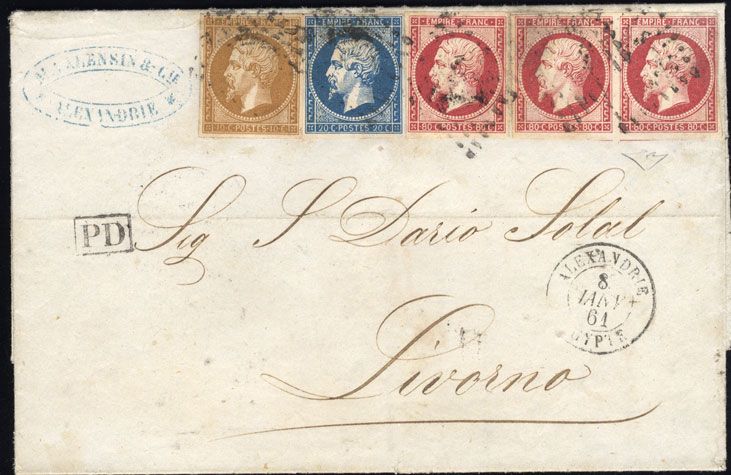 VALENSIN & CIE
ALEXANDRIE
EMPIRE FRANC
10 C POSTES 10 C
EMPIRE FRANC
20 C POSTES 20 C
EMPIRE FRANC
80 C POSTES 80 C
EMPIRE FRANC
80 C POSTES 80 C
EMPIRE FRANC
80 C POSTES 80 C
PD
Sig S Dario Solal
ALEXANDRIE
8
JANV
61
EGYPTE
Livorno